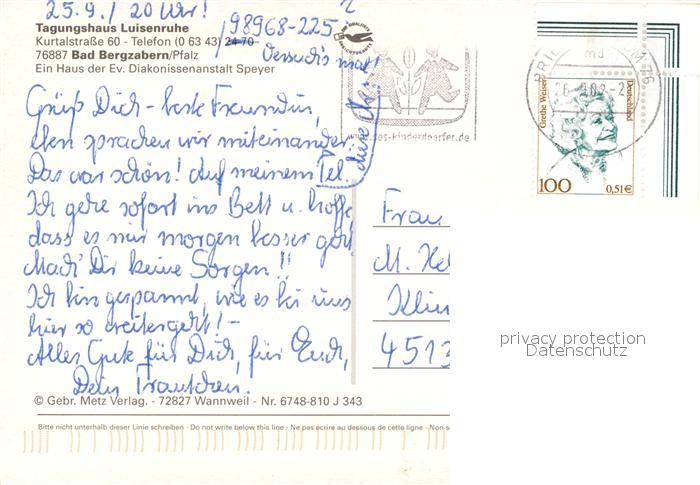 25.9./ 20 Uhr!
Tagungshaus Luisenruhe
Kurtalstraße 60 - Telefon (0 63 43) 24 70
98968-225
76887 Bad Bergzabern/Pfalz
Versuch's mal!
Ein Haus der Ev. Diakonissenanstalt Speyer
Grüß Dich - beste Freundin,
eben sprachen wir miteinander.
Das war schön! Auf meinem Tel.
Ich gehe sofort ins Bett u. hoffe,
dass es mir morgen besser geht.
Mach' Dir keine Sorgen!!
Ich bin gespannt, wie es bei uns
hier so weitergeht! -
Alles Gute für Dich, für Euch,
Dein Trautchen.
© Gebr. Metz Verlag. - 72827 Wannweil - Nr. 6748-810 J 343
Bitte nicht unterhalb dieser Linie schreiben - Do not write below this line - Ne pas écrire au dessous de cette ligne - Non s
sos-kinderdoerfer.de
Grethe Weiser
Deutschland
100
0,51€
Frau
M.
4513
privacy protection
Datenschutz